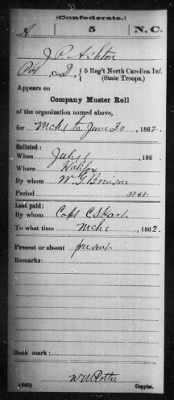 (Confederate.)
A 5 N.C.
J. P. Ashton
Pvt, Co. D, 5 Reg't North Carolina Inf.
(State Troops.)
Appears on
Company Muster Roll
of the organization named above,
for Mch 1 to June 30, 1862.
Enlisted:
When July 1, 186
Where Halifax
By whom W. G. Brinson
Period war
Last paid:
By whom Capt C
To what time Mch 1, 1862.
Present or absent present
Remarks:
Book mark:
(642) Copyist.